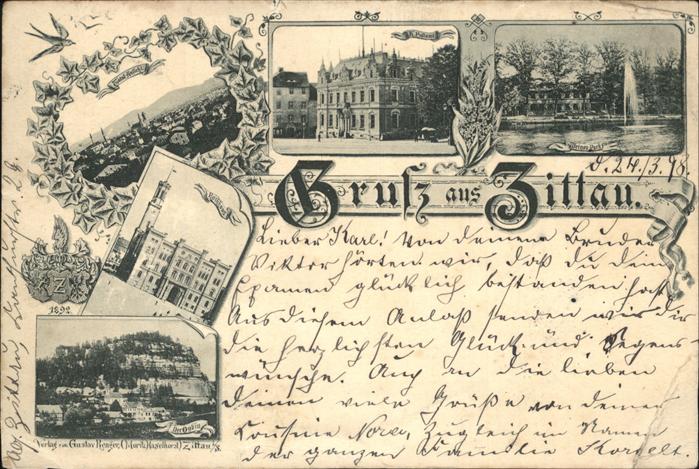 K. Postamt
Weinau Park
d. 24./3. 98.
Gruſz aus Zittau.
Lieber Karl! Von deinem Bruder
Viktor hörten wir, daß du dein
Examen glücklich bestanden hast.
Aus diesem Anlaß senden wir dir
die herzlichsten Glück- und Segens-
wünsche. Auch an die lieben
deinen viele Grüße von deiner
Cousine Nora, zugleich im Namen
der ganzen Familie Korselt.
Z
1892.
Der Oybin
Verlag von Gustav Renger, (Moritz Haselhorst) Zittau i/S.
Zittau,